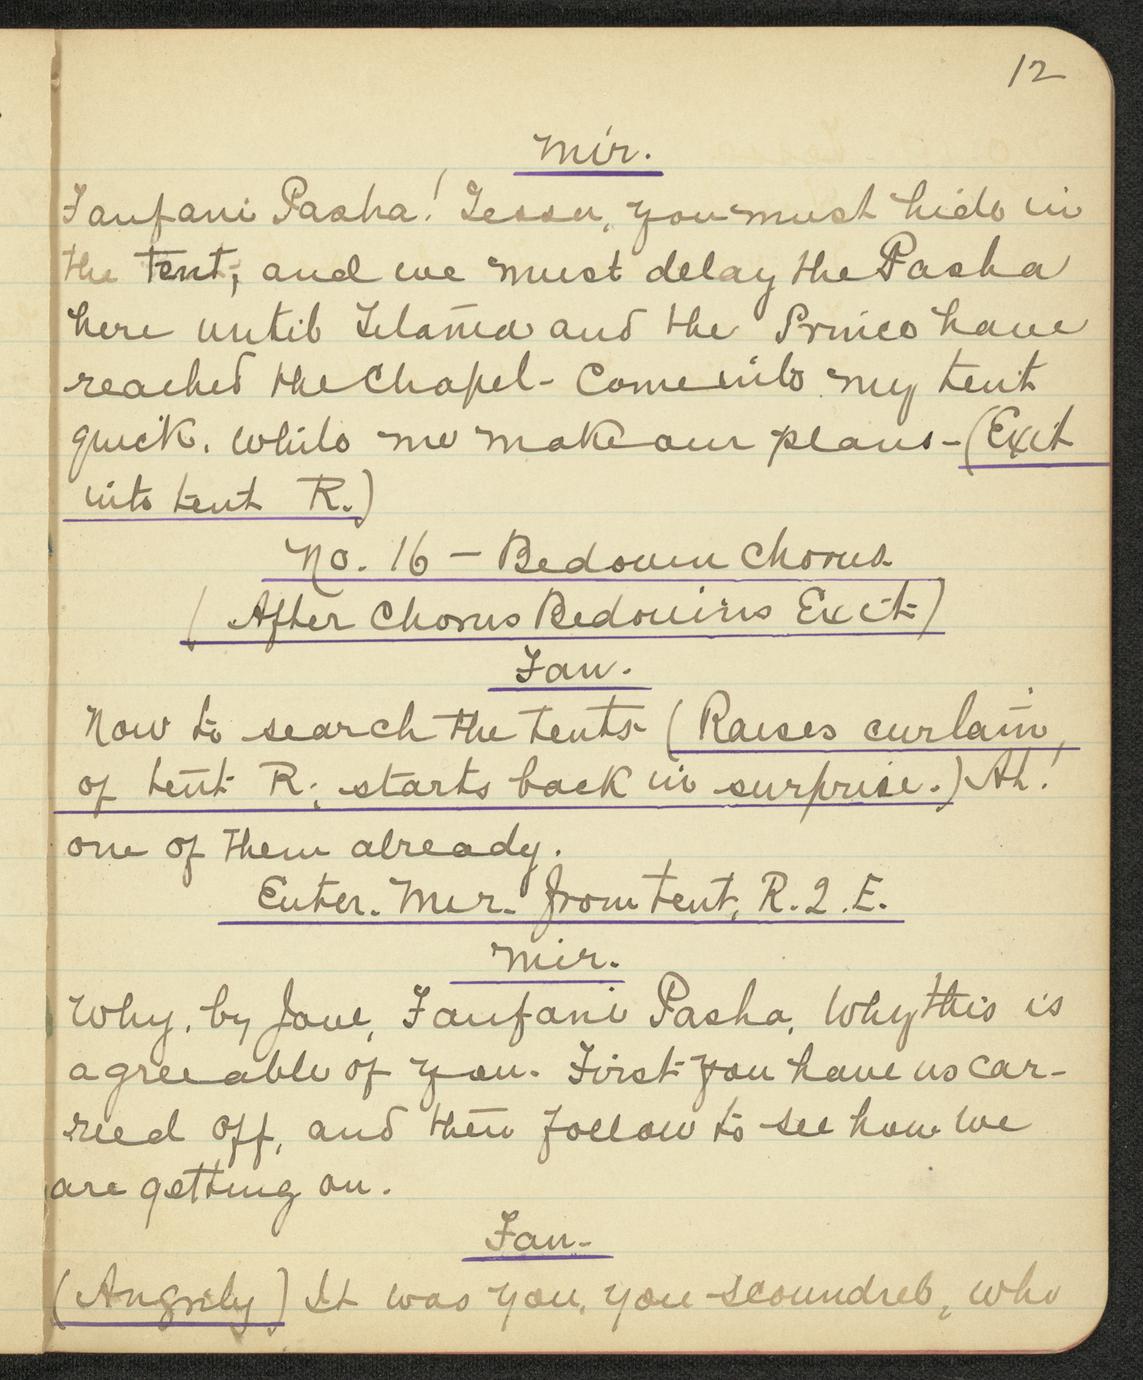 12
Mir.
Fanfani Pasha! Tessa, you must hide in
the tent, and we must delay the Pasha
here until Telama and the Prince have
reached the Chapel - Come into my tent
quick, while we make our plans - (Exit
into tent R.)
No. 16 - Bedouin Chorus
(After Chorus Bedouins Exit)
Fan.
Now to search the tents (Raises curtain
of tent R; starts back in surprise.) Ah!
one of them already.
Enter. Mir. from tent, R. 2. E.
Mir.
Why, by Jove, Fanfani Pasha, Why this is
agreeable of you. First you have us car-
ried off, and then follow to see how we
are getting on.
Fan.
(Angrily) It was you, you scoundrel, who